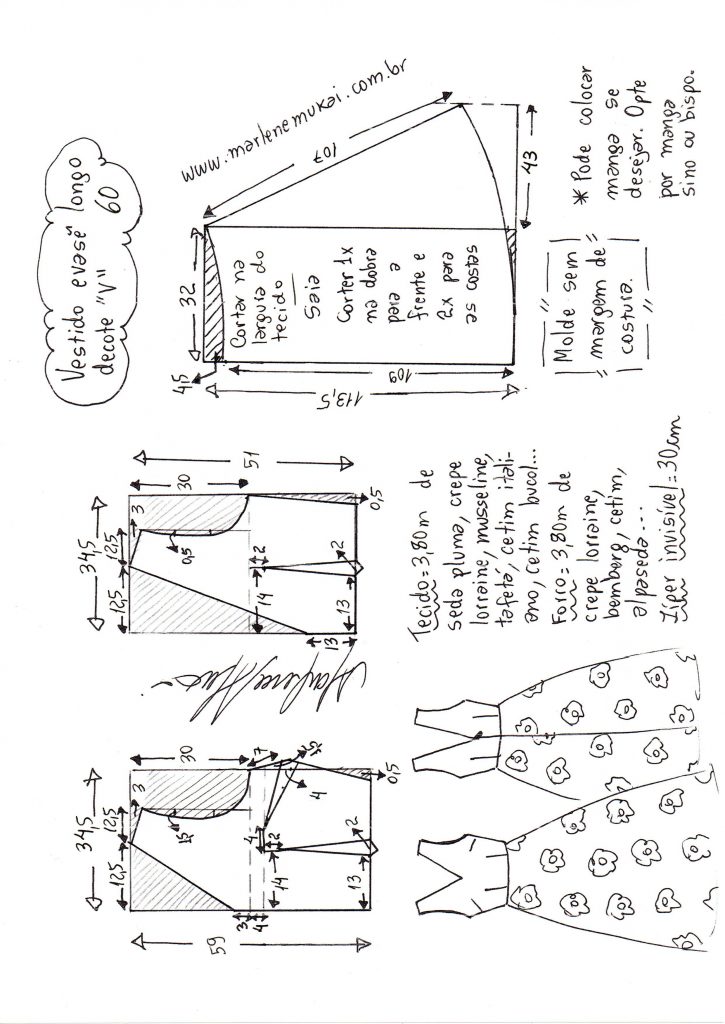 Vestido evasê longo
decote "V" 60
www.marlenemukai.com.br
107
32
43
4,5
109
113,5
Cortar na
largura do
tecido
Saia
Cortar 1x
na dobra
para a
frente e
2x para
as costas
* Pode colocar
manga se
desejar. Opte
por manga
sino ou bispo.
Molde sem
margem de
costura.
51
30
34,5
12,5
12,5
3
0,5
2
14
2
13
13
0,5
Tecido = 3,80m de
seda pluma, crepe
lorraine, musseline,
tafetá, cetim itali-
ano, cetim bucol...
Forro = 3,80m de
crepe lorraine,
bemberg, cetim,
alpaseda...
Zíper invisível = 30cm
59
30
34,5
12,5
12,5
3
7
4
4
2
14
2
13
3
4
0,5